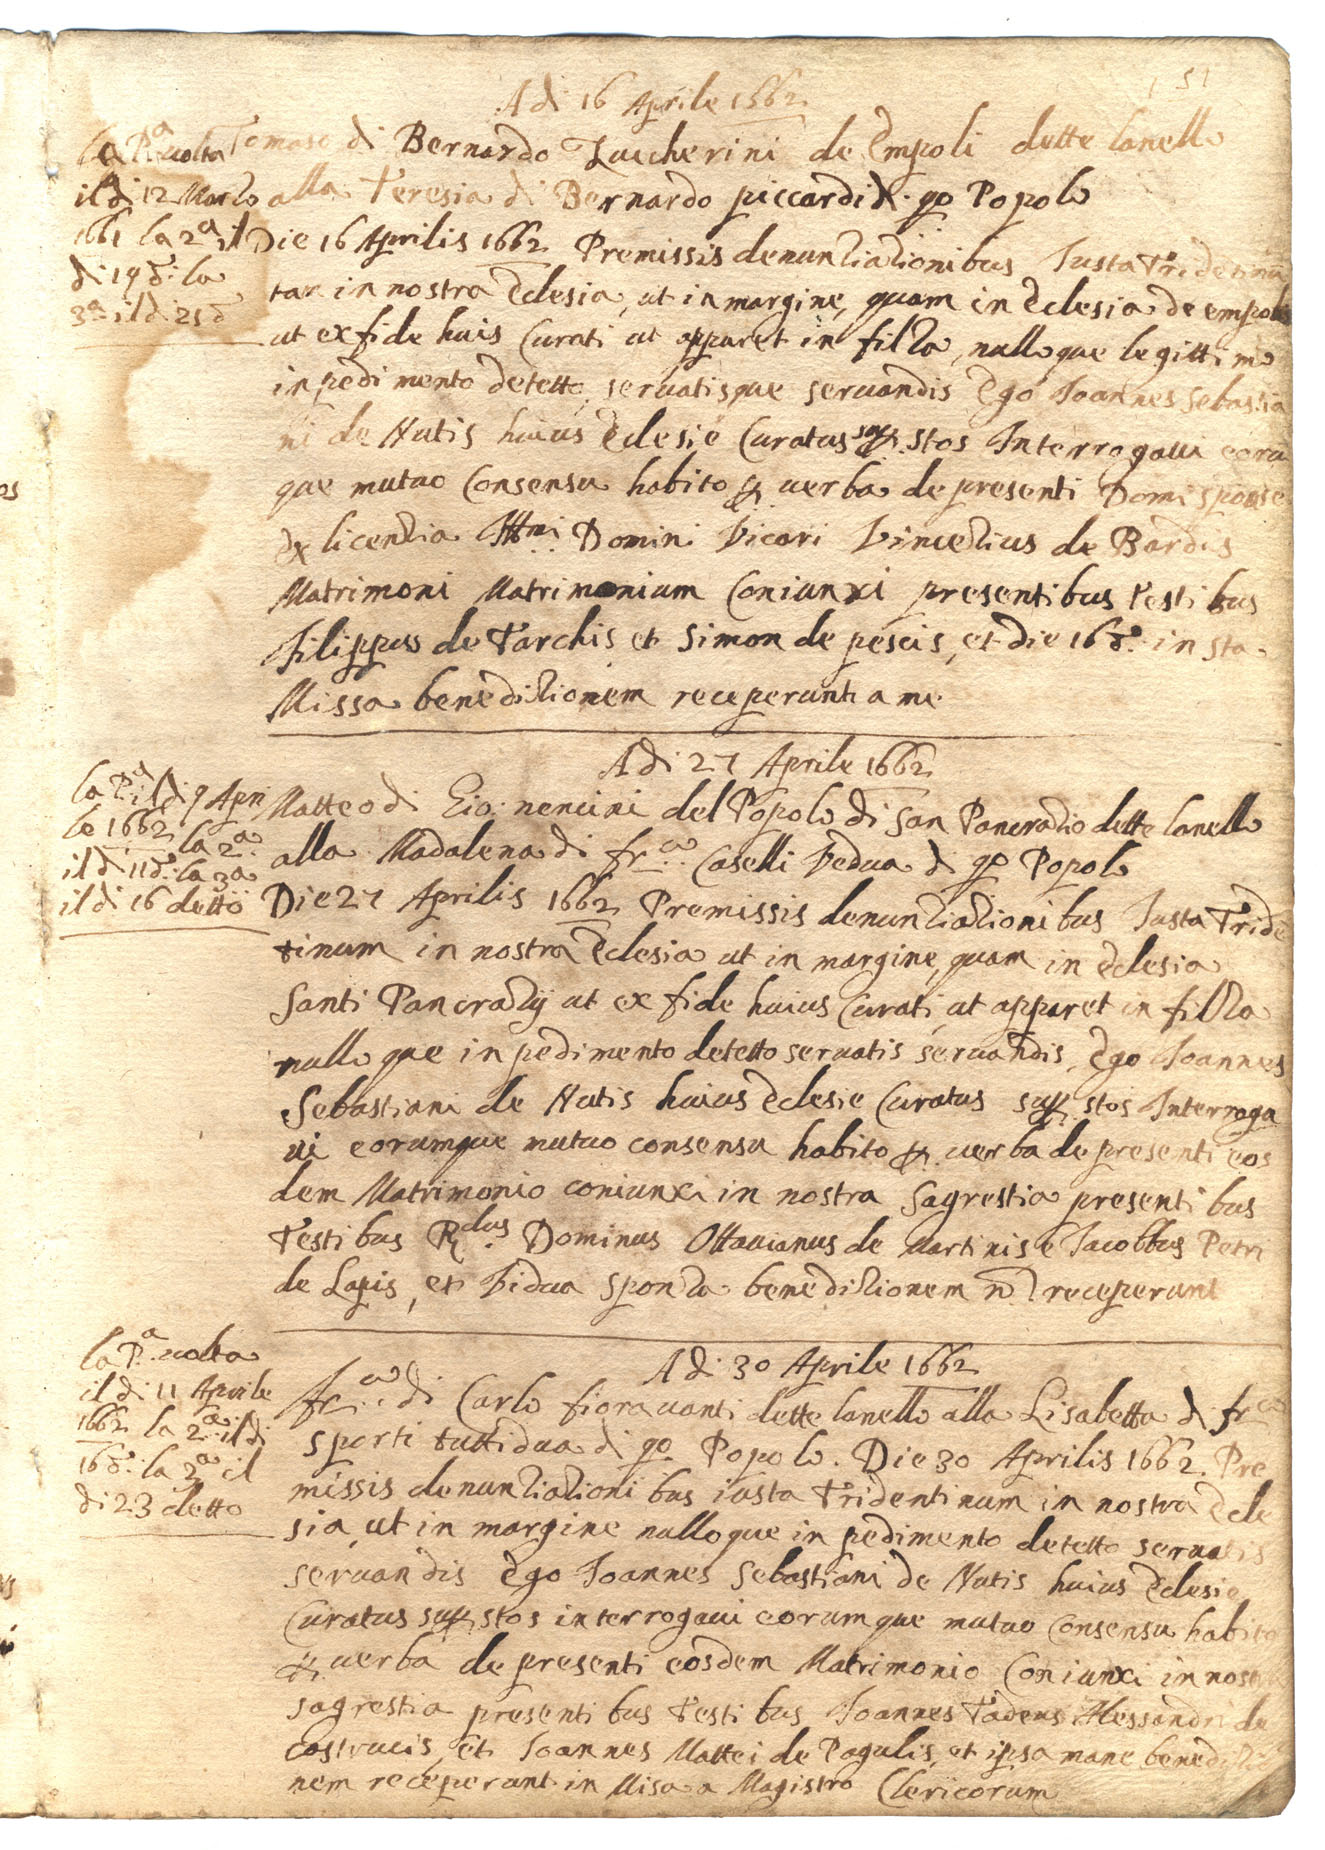 151
A di 16 Aprile 1662
la P.a volta
il di 12 Marzo
1661 la 2a il
di 19 d.o la
3a il di 25 d.o
Tomaso di Bernardo Zuccherini de Empoli dette lanello
alla Teresia di Bernardo piccardi d. qo Popolo
Die 16 Aprilis 1662 Premissis denuntiationibus Iusta Tridetinũ
tan in nostra Eclesia, ut in margine, quam in Eclesia de empolis
ut ex fide huis Curati ut apparet in filza, nulloque legittimo
inpedimento detetto, servatisque servandis Ego Ioannes Sebastia
ni de Nutis huius Eclesie Curatus sup.stos Interrogavi eorũ
que mutuo Consensu habito p. verba de presenti Domi sponse
Ex licentia Ill.mi Domini Vicari Vincetius de Bardis
Matrimoni Matrimonium Coniunxi presentibus testibus
Filippus de Tarchis et Simon de pescis, et die 16 d.o in sta
Missa beneditionem receperunt a me
A di 27 Aprile 1662
la P.a il di 9 Apri
le 1662 la 2a
il di 11 d.o la 3a
il di 16 detto
Matteo di Gio: nencini del Popolo di San Pancratio dette lanello
alla Madalena di fr.co Caselli Vedua di qo Popolo
Die 27 Aprilis 1662 Premissis denuntiationibus Iusta Tridẽ
tinum in nostra Eclesia ut in margine, quam in Eclesia
Santi Pancratij ut ex fide huius Curati, ut apparet in filza
nulloque inpedimento detetto servatis servandis, Ego Ioannes
Sebastiani de Nutis huius Eclesie Curatus sup.stos Interroga
vi eorumque mutuo consensu habito p. verba de presenti eos
dem Matrimonio coniunxi in nostra Sagrestia presentibus
Testibus R.dus Dominus Ottavianus de Martinis e Iacobbus Petri
de Lapis, et Vidua sponza beneditionem nõ receperunt
A di 30 Aprile 1662
la P.a volta
il di 11 Aprile
1662 la 2a il di
16 d.o la 3a il
di 23 detto
fr.co di Carlo fioravanti dette lanello alla Lisabetta di fr.co
sporti tuttidua di qo Popolo. Die 30 Aprilis 1662. Pre
missis denuntiationibus iusta Tridentinum in nostra Ecle
sia, ut in margine nulloque inpedimento detetto servatis
servandis Ego Ioannes Sebastiani de Nutis huius Eclesie
Curatus sup.stos interrogavi eorumque mutuo Consensu habito
p. verba de presenti eosdem Matrimonio Coniunxi in nostra
sagrestia presentibus testibus Ioannes Tadeus Alessandri de
costrucis, et Ioannes Mattei de Pagulis, et ipsa mane beneditio
nem receperunt in Misa a Magistro Clericorum